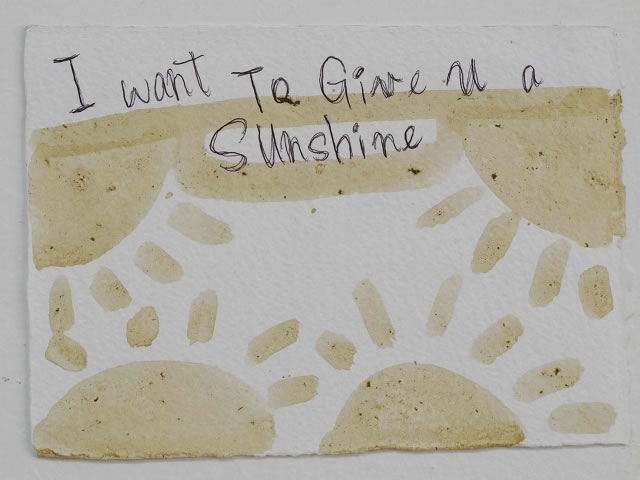 I want To Give U a
Sunshine